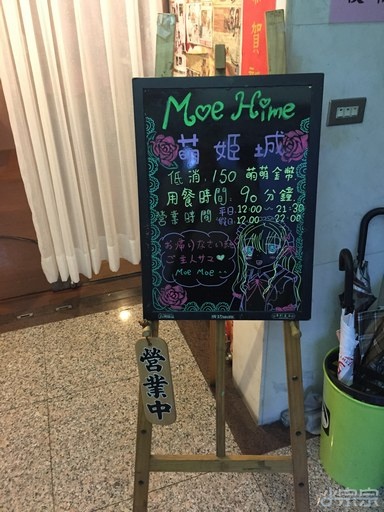 Moe Hime
萌姬城
低消.150 萌萌金幣
用餐時間:90分鐘
營業時間 平日:12:00~21:30
假日:12:00~22:00
お帰りなさいませ
ご主人サマ♥
Moe Moe
營業中
小食宗